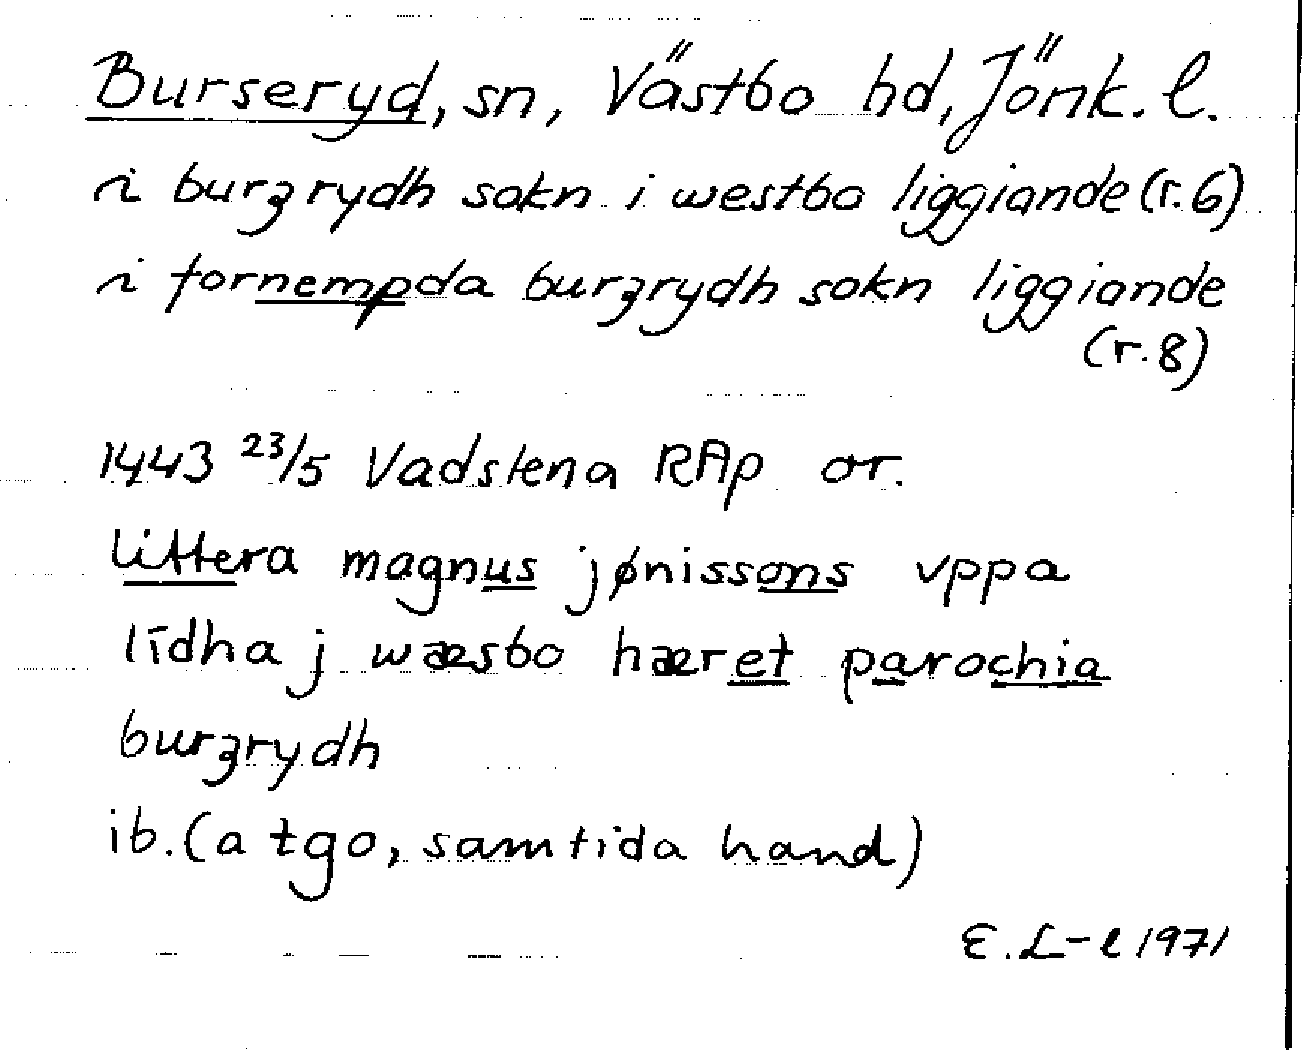 Burseryd, sn, Västbo hd, Jönk. l.
i burʒrydh sokn i westbo liggiande (r. 6)
i fornempda burʒrydh sokn liggiande
(r. 8)
1443 23/5 Vadstena RAp or.
littera magnus jønissons vppa
lidha j wæsbo hæret parochia
burʒrydh
ib. (a tgo, samtida hand)
E. L-l 1971